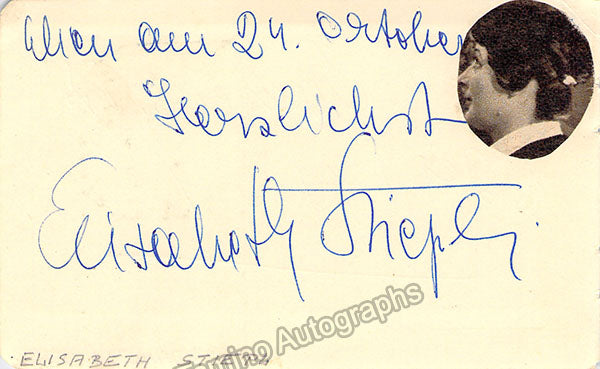 Wien am 24. Oktober
Herzlichst
Elisabeth Stiepl
Tamino Autographs
ELISABETH